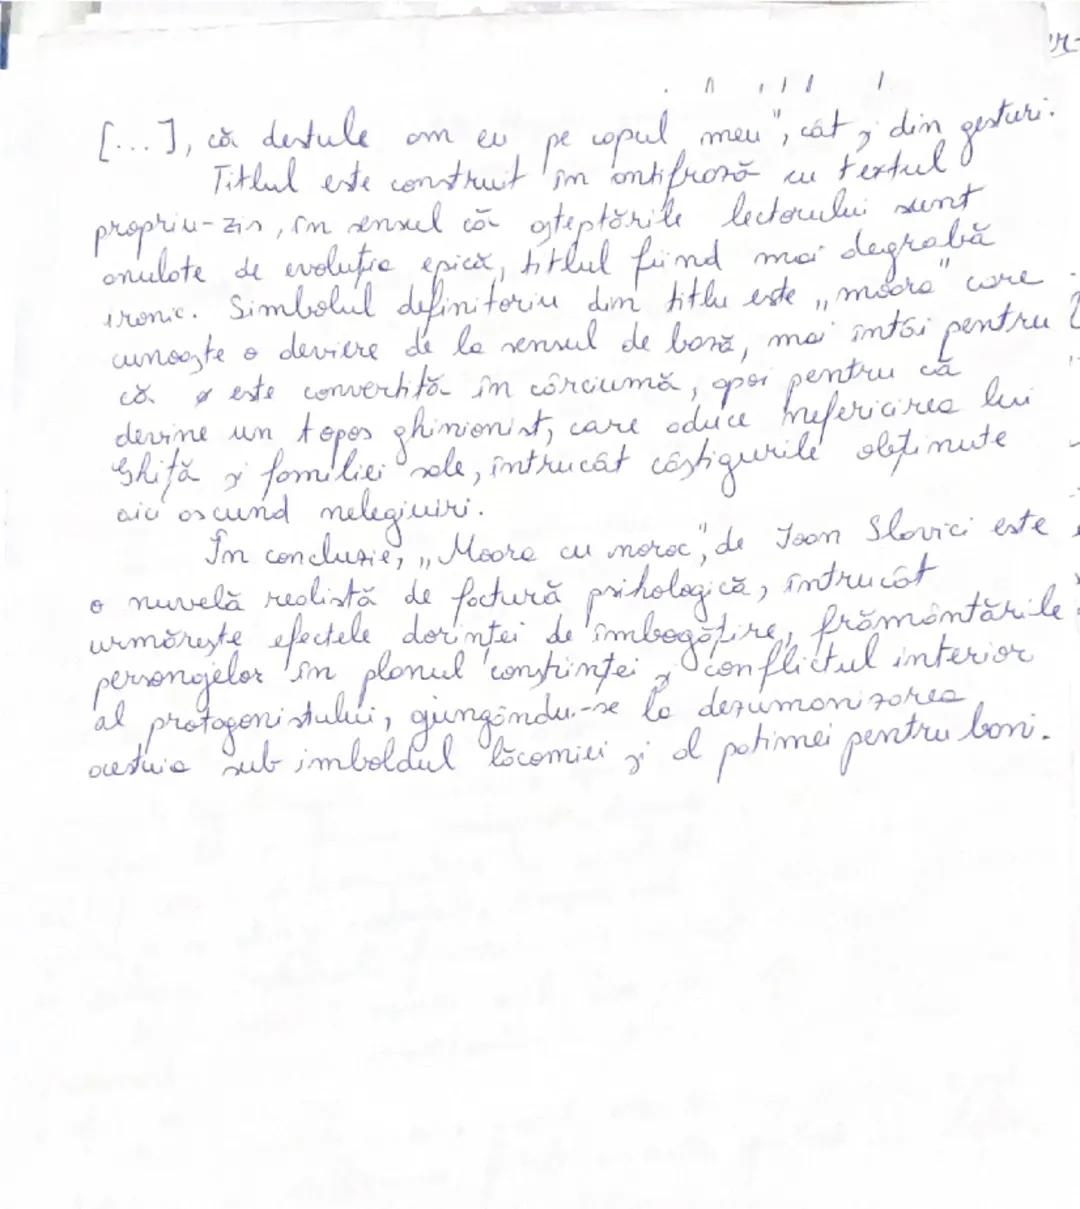 [...], că destule am eu pe capul meu", cât și din gesturi.
Titlul este construit în antifrază cu textul
propriu-zis, în sensul că așteptările lectorului sunt
anulate de evoluția epică, titlul fiind mai degrabă
ironic. Simbolul definitoriu din titlu este „moara" care
cunoaște o deviere de la sensul de bază, mai întâi pentru
că este convertită în cârciumă, apoi pentru că
devine un topos ghinionist, care aduce nefericirea lui
Ghiță și familiei sale, întrucât câștigurile obținute
aici ascund nelegiuiri.
În concluzie, „Moara cu noroc", de Ioan Slavici este
o nuvelă realistă de factură psihologică, întrucât
urmărește efectele dorinței de îmbogățire, frământările
personajelor în planul conștinței și conflictul interior
al protagonistului, giungându-se la dezumanizarea
acestuia sub imboldul lăcomiei și al patimei pentru bani.